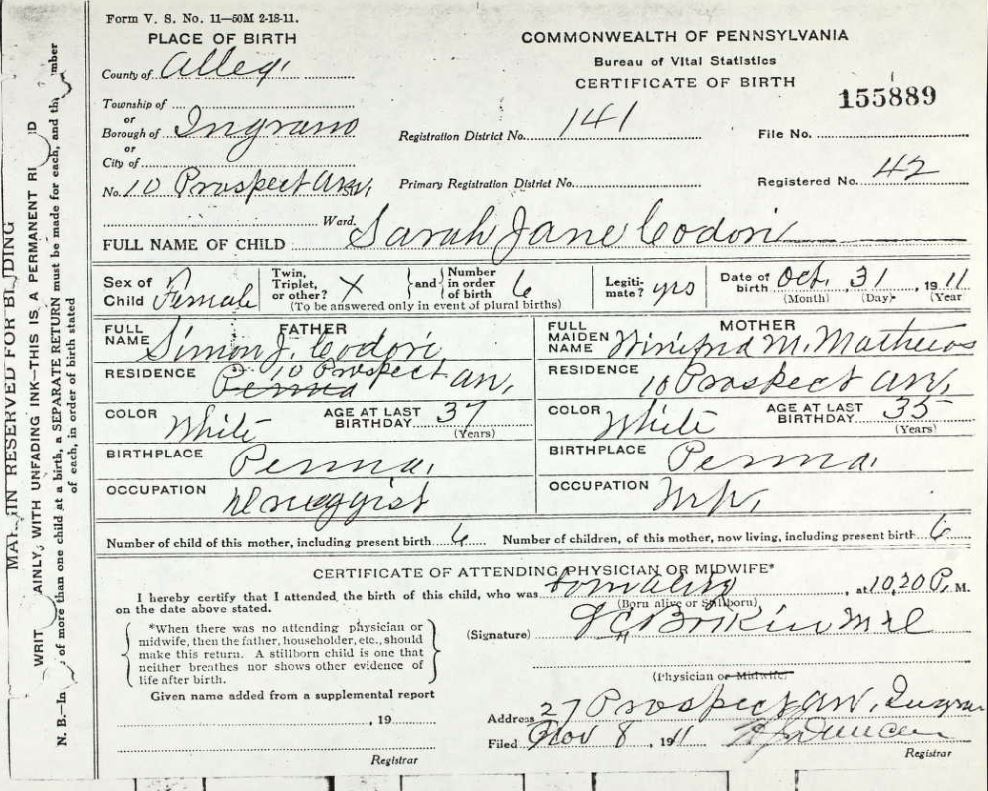 Form V. S. No. 11—50M 2-18-11.
PLACE OF BIRTH
County of Alleg.
Township of
or
Borough of Ingram
or
City of
No. 10 Prospect Av.
Ward.
COMMONWEALTH OF PENNSYLVANIA
Bureau of Vital Statistics
CERTIFICATE OF BIRTH
155889
Registration District No. 141
File No.
Primary Registration District No.
Registered No. 42
FULL NAME OF CHILD Sarah Jane Codori
Sex of Child Female
Twin, Triplet, or other? X and Number in order of birth 6
(To be answered only in event of plural births)
Legiti-mate? yes
Date of birth Oct. 31, 1911
(Month) (Day) (Year
FATHER
FULL NAME Simon J. Codori
RESIDENCE 10 Prospect Av.
Penna
COLOR White
AGE AT LAST BIRTHDAY 37
(Years)
BIRTHPLACE Penna.
OCCUPATION Druggist
MOTHER
FULL MAIDEN NAME Winifred M. Mathews
RESIDENCE 10 Prospect Av.
COLOR White
AGE AT LAST BIRTHDAY 35
(Years)
BIRTHPLACE Penna.
OCCUPATION
Number of child of this mother, including present birth 6
Number of children, of this mother, now living, including present birth 6
CERTIFICATE OF ATTENDING PHYSICIAN OR MIDWIFE*
I hereby certify that I attended the birth of this child, who was born alive, at 10,20 P. M.
on the date above stated.
(Born alive or Stillborn)
*When there was no attending physician or
midwife, then the father, householder, etc., should
make this return. A stillborn child is one that
neither breathes nor shows other evidence of
life after birth.
(Signature)
(Physician or Midwife)
Given name added from a supplemental report
, 19
Registrar
Address 27 Prospect Av. Ingram
Filed Nov 8, 1911 Duncan
Registrar
MAR IN RESERVED FOR BI DING
WRIT AINLY, WITH UNFADING INK—THIS IS A PERMANENT RE D
N. B.—In of more than one child at a birth, a SEPARATE RETURN must be made for each, and the mber
of each, in order of birth stated